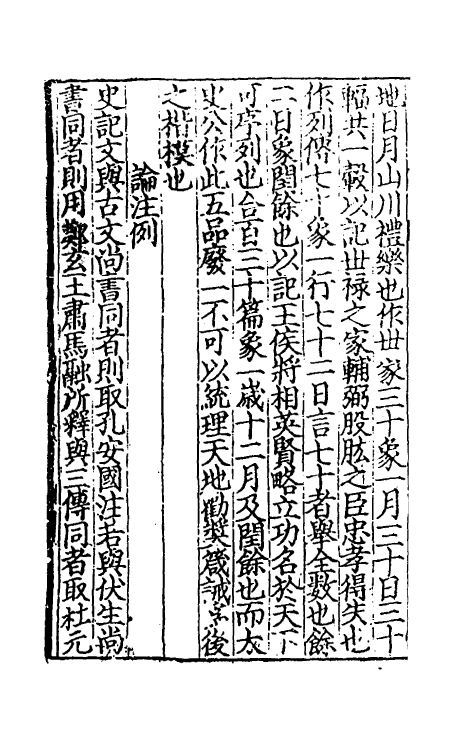 地日月山川禮樂也作丗家三十象一月三十日三十
輻共一轂以記丗禄之家輔弼股肱之臣忠孝得失也
作列傳七十象一行七十二日言七十者舉全數也餘
二日象閏餘也以記王侯將相英賢略立功名於天下
可序列也合百三十篇象一歳十二月及閏餘也而太
史公作此五品廢一不可以統理天地勸奬箴誡爲後
之楷模也
論注例
史記文與古文尚書同者則取孔安國注若與伏生尚
書同者則用鄭玄王肅馬融所釋與三傳同者取杜元